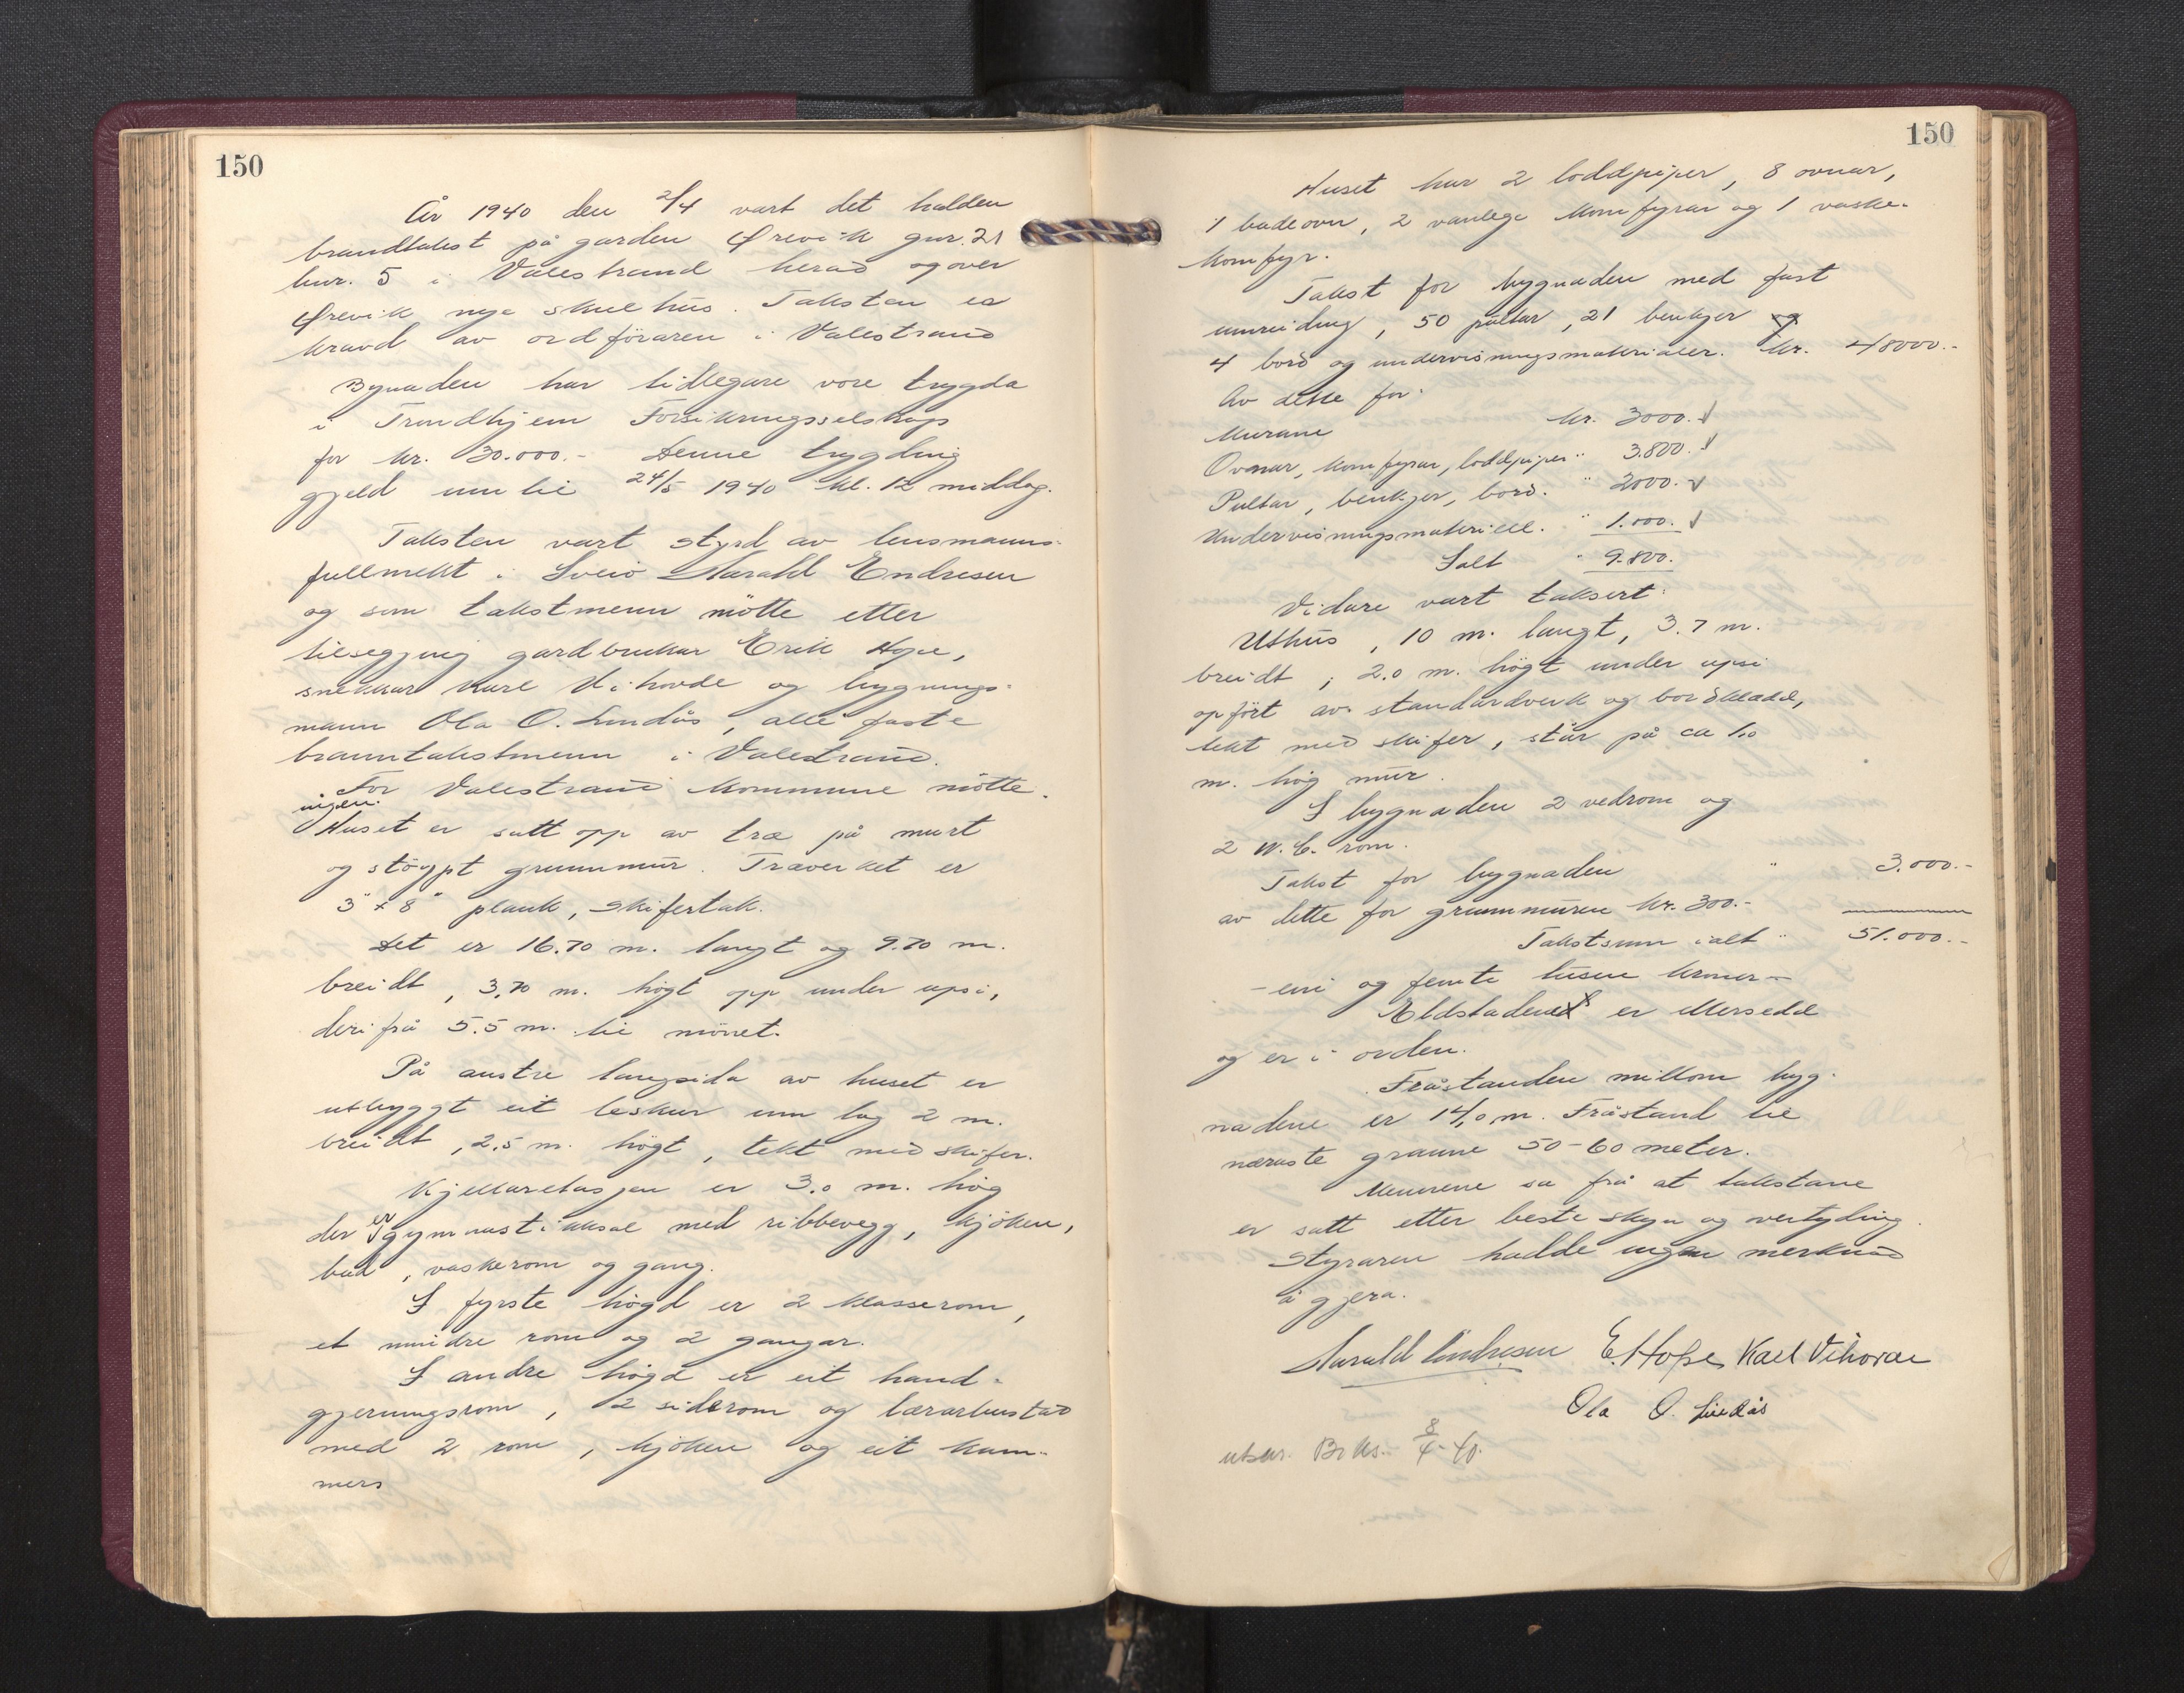 150
År 1940 den 2/4 vart det halden
brandtakst på garden Ørevik gnr. 21
bnr. 5 i Valestrand herad og over
Ørevik nye skulehus. Taksten er
kravd av ordföraren i Valestrand
Bynaden har tidlegare vore trygda
i Trondhjem Forsikringsselskap
for kr. 30.000.- Denne trygding
gjeld um til 24/5 1940 kl. 12 middag.
Taksten vart styrd av lensmanns-
fullmekt i Sveio Harald Endresen
og som takstmenn mötte etter
tilsegjing gardbrukar Erik Hope,
snekkar Karl Vihovde og bygnings-
mann Ola O. Lindås, alle faste
branntakstmenn i Valestrand.
For Valestrand kommune mötte
ingen.
Huset er satt opp av træ på murt
og stöypt grunnmur. Træverket er
3" x 8" plank, skifertak.
Det er 16.70 m. langt og 9.70 m.
breidt, 3,70 m. högt opp under upsi,
derifrå 5.5 m. til mönet.
På austre langsida av huset er
utbyggt eit leskur um lag 2 m.
breidt, 2,5 m. högt, tekt med skifer.
Kjellaretasjen er 3.0 m. hög
der er gymnastikksal med ribbevegg, kjöken,
bad, vaskerom og gang.
I fyrste högd er 2 klasserom,
et mindre rom og 2 gangar.
I andre högd er eit hand-
gjerningsrom, 2 siderom og lærarbustad
med 2 rom, kjöken og eit kam-
mers
150
Huset har 2 loddpiper, 8 ovnar,
1 badeovn, 2 vanlege komfyrar og 1 vaske-
komfyr.
Takst for bygnaden med fast
innreiding, 50 pultar, 21 benkjer og
4 bord og undervisningsmaterialer. Kr. 48000.-
Av dette for:
Murane kr. 3000.
Ovnar, komfyrar, loddpiper " 3.800.
Pultar, benkjer, bord. " 2000.
Undervisningsmateriell. " 1.000.
Salt " 9.800.
Vidare vart taksert:
Uthus, 10 m. langt, 3.7 m.
breidt, 2.0 m. högt under upsi
opfört av standardverk og bordkledd,
tekt med skifer, står på ca 1.0
m. hög mur.
I bygnaden 2 vedrom og
2 W.C. rom.
Takst for bygnaden " 3.000.-
av dette for grunnmuren kr. 300.-
Takstsum ialt " 51.000.-
- eini og femti tusen kroner -
Eldstadene er ettersedd
og er i orden.
Fråstanden millom byg-
nadene er 14,0 m. Fråstand til
næraste granne 50-60 meter.
Mennene sa frå at takstane
er satt etter beste skyn og vertyding.
Styraren hadde ingen merknad
å gjera.
Harald Endresen E. Hope Karl Vihovde
Ola O. Lindås
utskr. Br ks. 8/4-40.